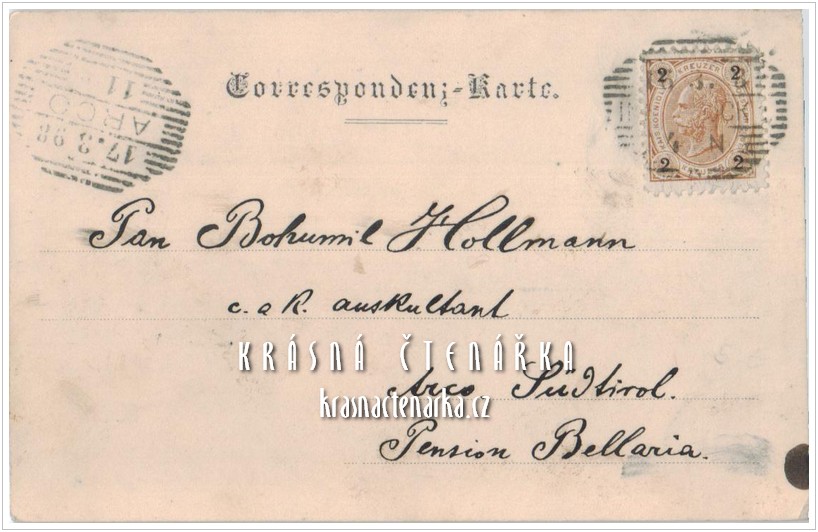 Correspondenz-Karte.
17.3.98
ARCO
11
2 KREUZER 2
2 2
Pan Bohumil Hollmann
c. a k. auskultant
KRÁSNÁ ČTENÁŘKA
Arco Südtirol.
krasnactenarka.cz
Pension Bellaria.